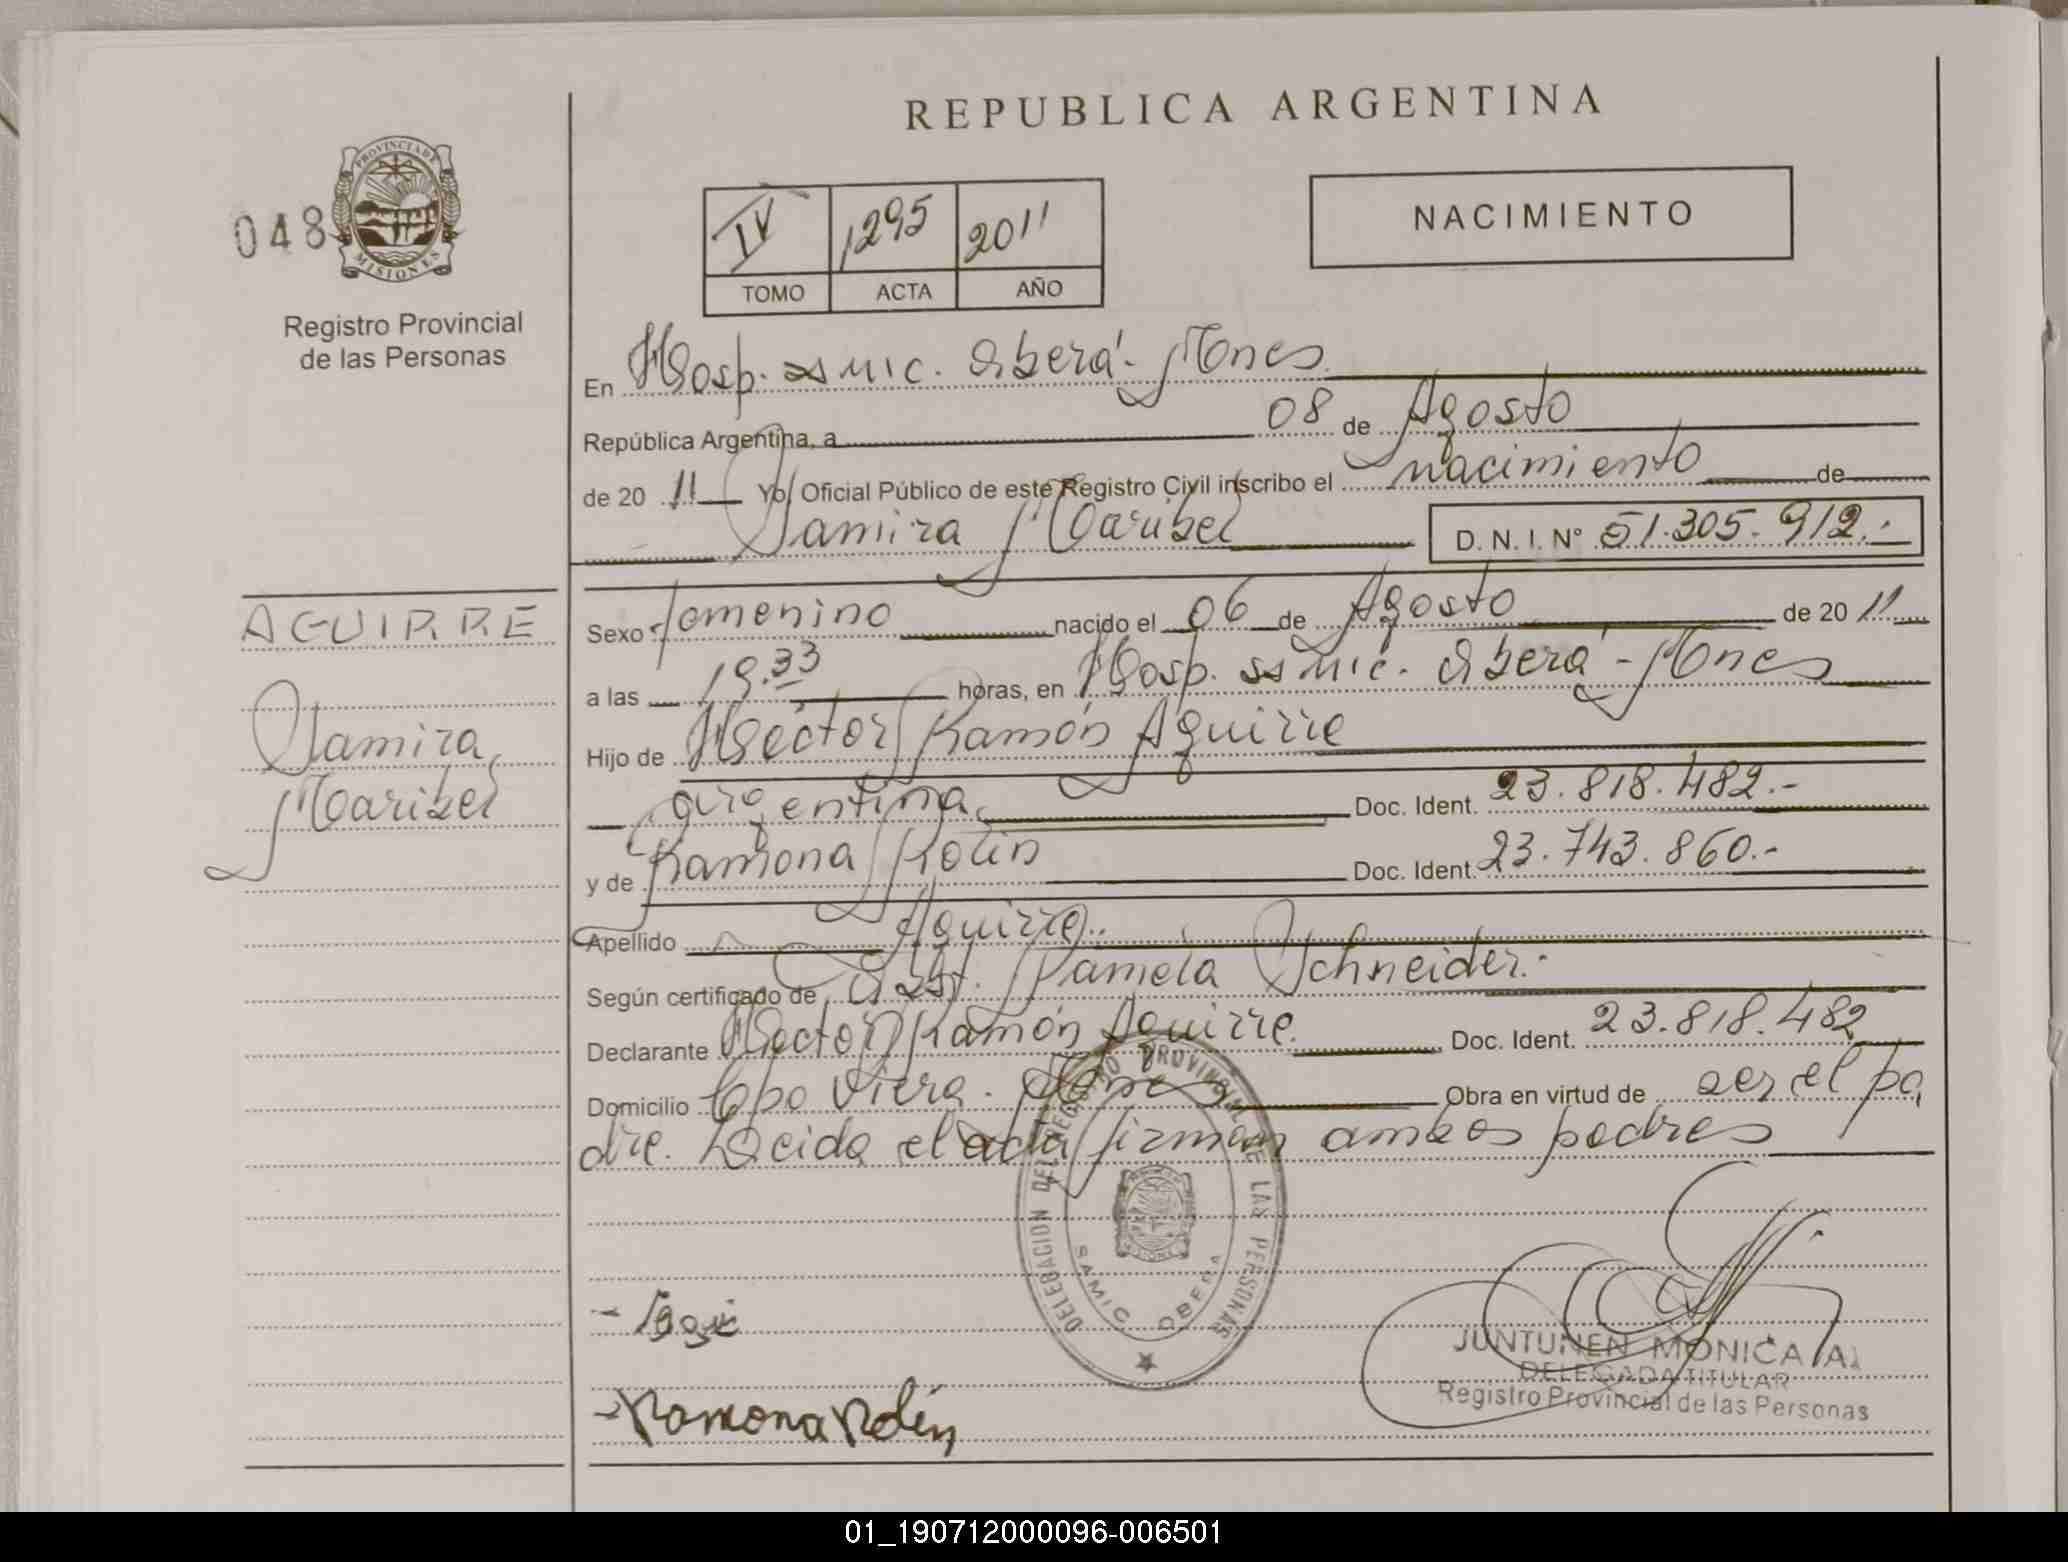 REPUBLICA ARGENTINA
048
PROVINCIA DE
MISIONES
Registro Provincial
de las Personas
IV 1295 2011
TOMO ACTA AÑO
NACIMIENTO
En Hosp. ss mic. Oberá - Mnes
República Argentina, a 08 de Agosto
de 20 11 Yo, Oficial Público de este Registro Civil inscribo el nacimiento de
Samira Maribel D. N. I. Nº 51.305.912.-
AGUIRRE
Samira
Maribel
Sexo femenino nacido el 06 de Agosto de 20 11
a las 19.33 horas, en Hosp. ss mic. Oberá - Mnes
Hijo de Héctor Ramón Aguirre
argentina Doc. Ident. 23.818.482.-
y de Ramona Rolin Doc. Ident. 23.743.860.-
Apellido Aguirre..
Según certificado de Obst. Pamela Schneider.-
Declarante Hector Ramón Aguirre. Doc. Ident. 23.818.482
Domicilio Cpo Viera. Mnes Obra en virtud de ser el pa
dre. Leida el acta firman ambos padres
DELEGACION DEL REGISTRO PROVINCIAL DE LAS PERSONAS
SAMIC OBERA
Ramona Rolin
JUNTUNEN MONICA A.
DELEGADA TITULAR
Registro Provincial de las Personas
01_190712000096-006501